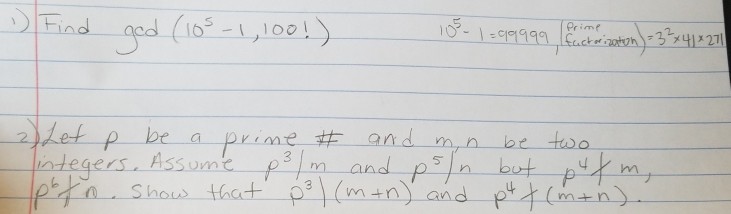 1) Find gcd (10⁵-1, 100!) 10⁵-1=99999, (Prime factorization)=3²×41×271
2) Let p be a prime # and m,n be two
integers. Assume p³|m and p⁵|n but p⁴∤m,
p⁶∤n. Show that p³|(m+n) and p⁴∤(m+n).